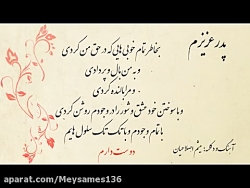 پدر عزیزم
بخاطر تمام خوبی هایی که در حق من کردی
و به من بال و پر دادی
و مرا بالنده کردی
و با سوختن خود عشق و شور را در وجودم روشن کردی
با تمام وجودم و با تک تک سلول هایم
دوست دارم
آهنگ و دکلمه: میثم اصلاحیان
aparat.com/Meysames136